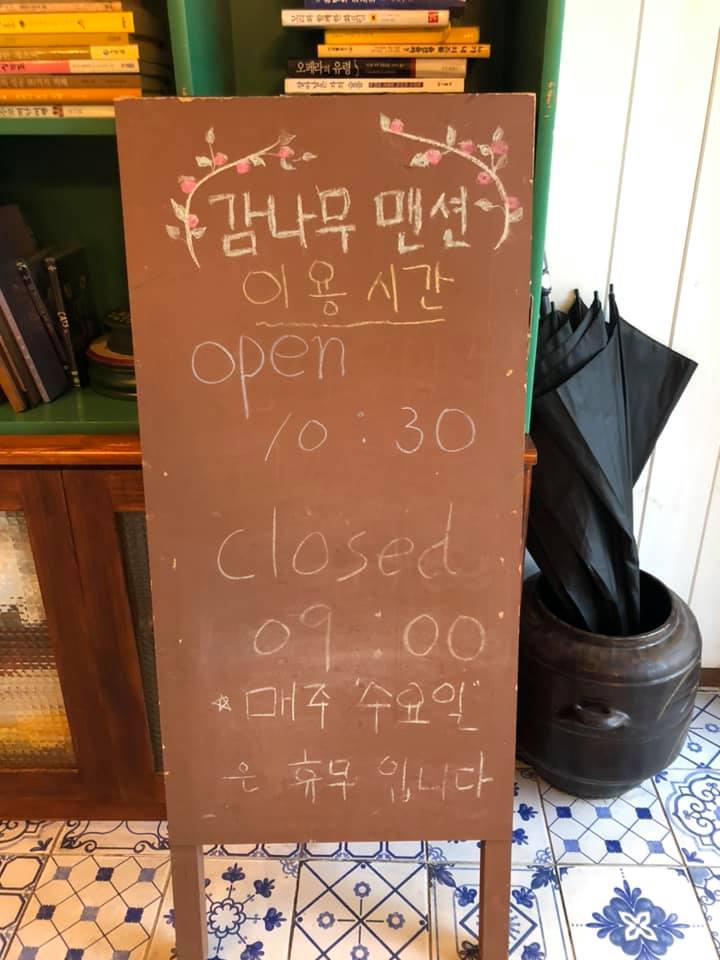 오페라의 유령
감나무 맨션
이용 시간
open
10:30
closed
09:00
* 매주 "수요일"
은 휴무 입니다